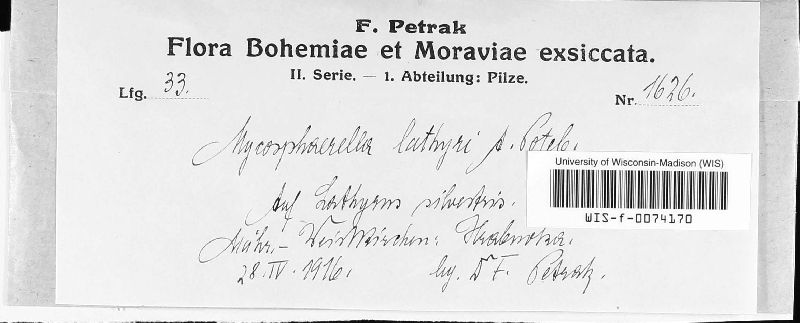 F. Petrak
Flora Bohemiae et Moraviae exsiccata.
II. Serie. — 1. Abteilung: Pilze.
Lfg. 33.
Nr. 1626.
Mycosphaerella lathyri A. Poteb.
University of Wisconsin-Madison (WIS)
WIS-f-0074170
Auf Lathyrus silvestris.
Mähr.-Weisskirchen: Hrabuvka.
28. IV. 1916. lg. Dr F. Petrak.